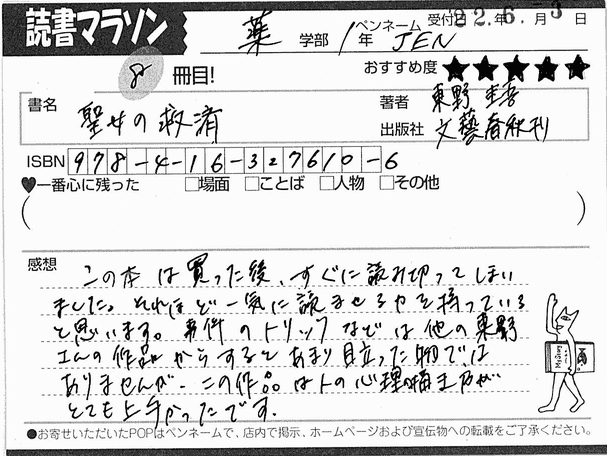 読書マラソン
薬 学部 1年
ペンネーム JEN
受付日 22年6月3日
8 冊目!
おすすめ度 ★★★★★
書名 聖女の救済
著者 東野圭吾
出版社 文藝春秋刊
ISBN 978-4-16-327610-6
♥一番心に残った □場面 □ことば □人物 □その他
( )
感想
この本は買った後、すぐに読み切ってしまい
ました。それほど一気に読ませる力を持っている
と思います。事件のトリックなどは他の東野
さんの作品からするとあまり目立った物では
ありませんが、この作品は人の心理描写が
とても上手かったです。
●お寄せいただいたPOPはペンネームで、店内で掲示、ホームページおよび宣伝物への転載をご了承ください。